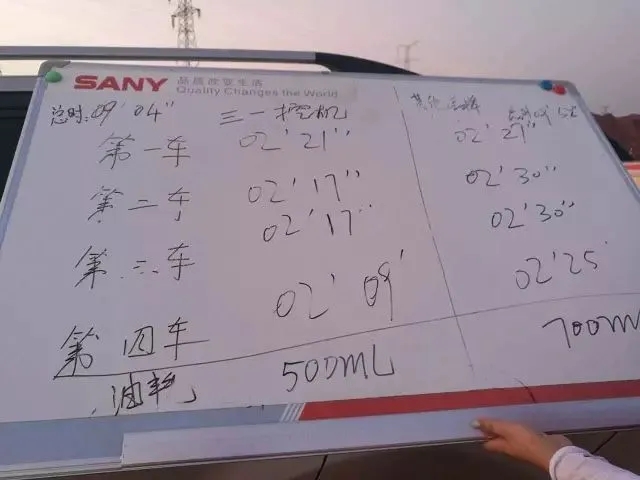 SANY 品质改变世界
Quality Changes the World
总时:09'04" 三一挖机 总时09'52
第一车 02'21" 02'27"
第二车 02'17" 02'30"
第三车 02'17" 02'30"
第四车 02'09' 02'25
油耗 500ML 700ML